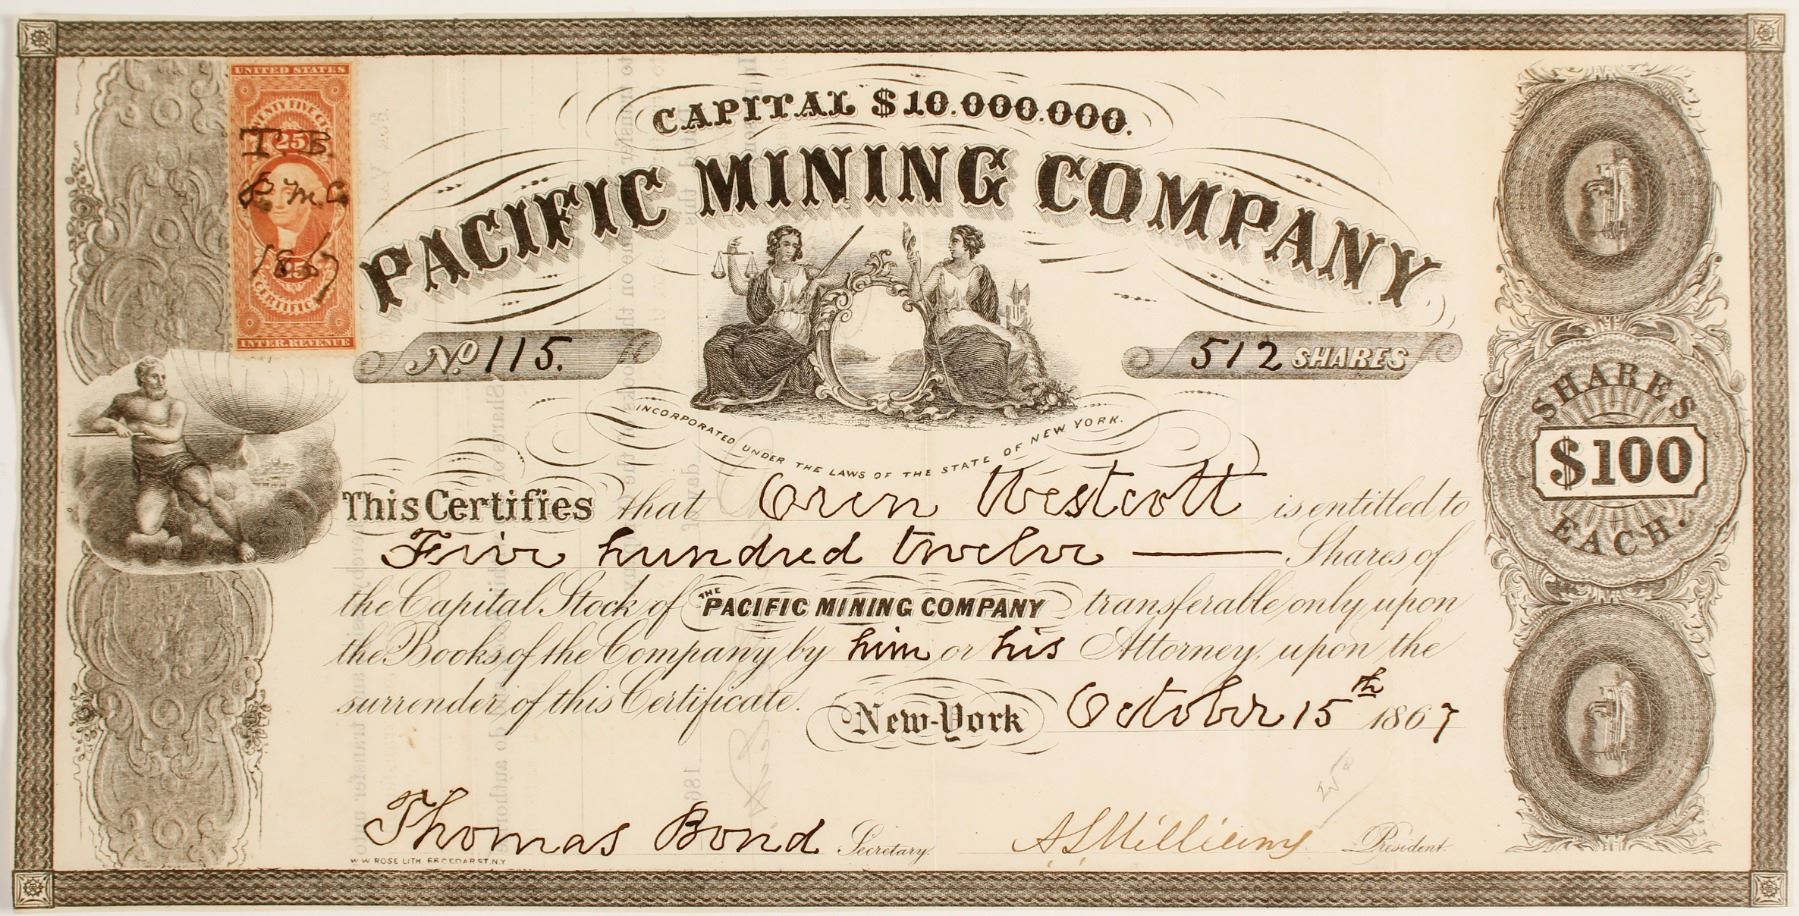 UNITED STATES
TWENTY FIVE CTS
25
T. B.
P. M. C.
1867
25
CERTIFICATE
INTER. REVENUE
CAPITAL $10.000.000.
PACIFIC MINING COMPANY
No 115.
512 SHARES
INCORPORATED UNDER THE LAWS OF THE STATE OF NEW YORK.
SHARES
$100
EACH.
This Certifies that Oren Westcott is entitled to
Five hundred twelve Shares of
the Capital Stock of THE PACIFIC MINING COMPANY transferable only upon
the Books of the Company by him or his Attorney, upon the
surrender of this Certificate.
New-York October 15th 1867
Thomas Bond Secretary.
A S Williams President.
W W ROSE LITH CEDAR ST. N.Y